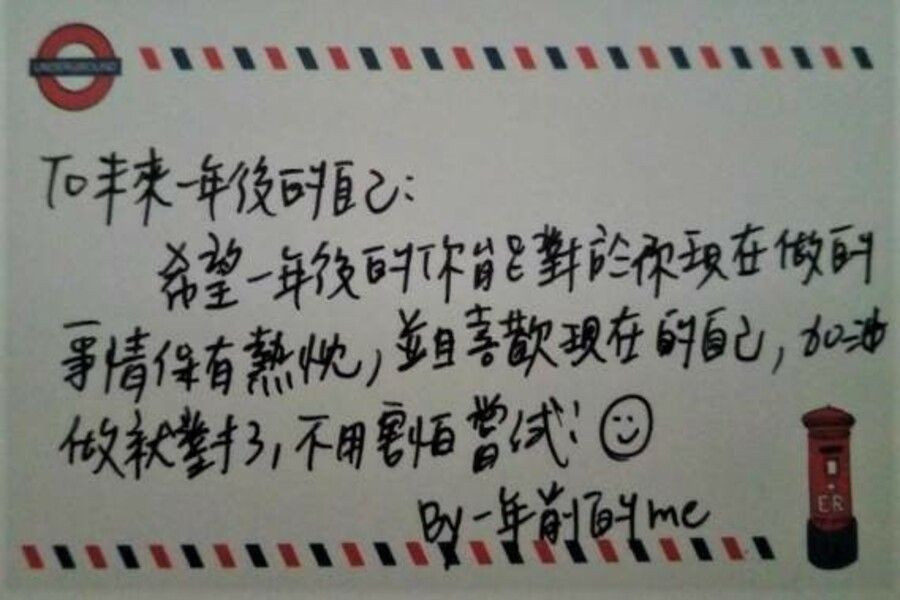 UNDERGROUND
To未來一年後的自己:
希望一年後的你能對於你現在做的
事情保有熱忱,並且喜歡現在的自己,加油
做就對了,不用害怕嘗試!
By一年前的me
ER